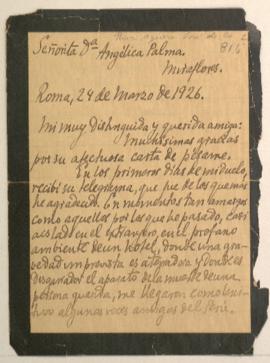 816
Señorita Dª Angélica Palma.
Miraflores.
Roma, 24 de Marzo de 1926.
Mi muy distinguida y querida amiga:
Muchísimas gracias
por su afectuosa carta de pésame.
En los primeros días de mi duelo,
recibí su telegrama, que fue de los que más
he agradecido. En momentos tan amargos
como aquellos por los que he pasado, casi
aislado en el extranjero, en el profano
ambiente de un Hotel, donde una gra-
vedad imprevista es aterradora y donde es
desgarrador el aparato de la muerte de una
persona querida, me llegaron como
algunas voces amigas del Perú.